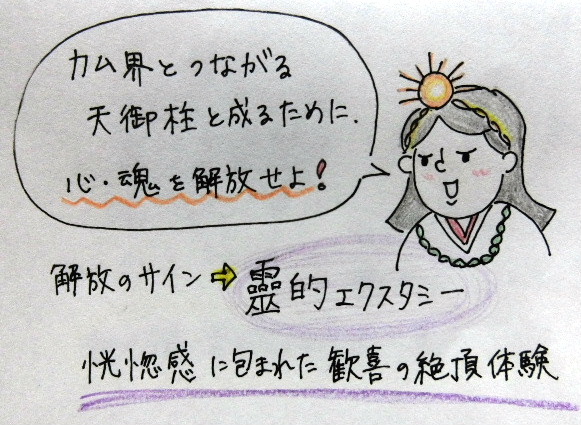 カム界とつながる
天御柱と成るために、
心・魂を解放せよ!
解放のサイン⇨靈的エクスタシー
恍惚感に包まれた歓喜の絶頂体験